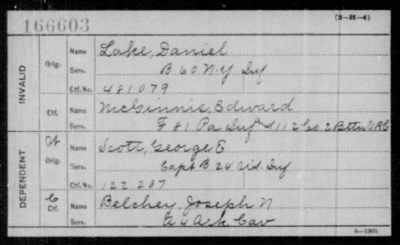 166603
(3-H-4)
INVALID
Orig.
Name Lake, Daniel
Serv. B. 60 N.Y Inf
Ctf.No. 481079
Ctf.
Name McGinnis, Edward
F 81 Pa Inf & 112 Co 2 Battn VRC
DEPENDENT
W
Orig.
Name Scott, George E
Serv. Capt B 24 Inf
Ctf.No. 122237
C
Ctf.
Name Belchey, Joseph N
Serv. A 4 Ark Cav